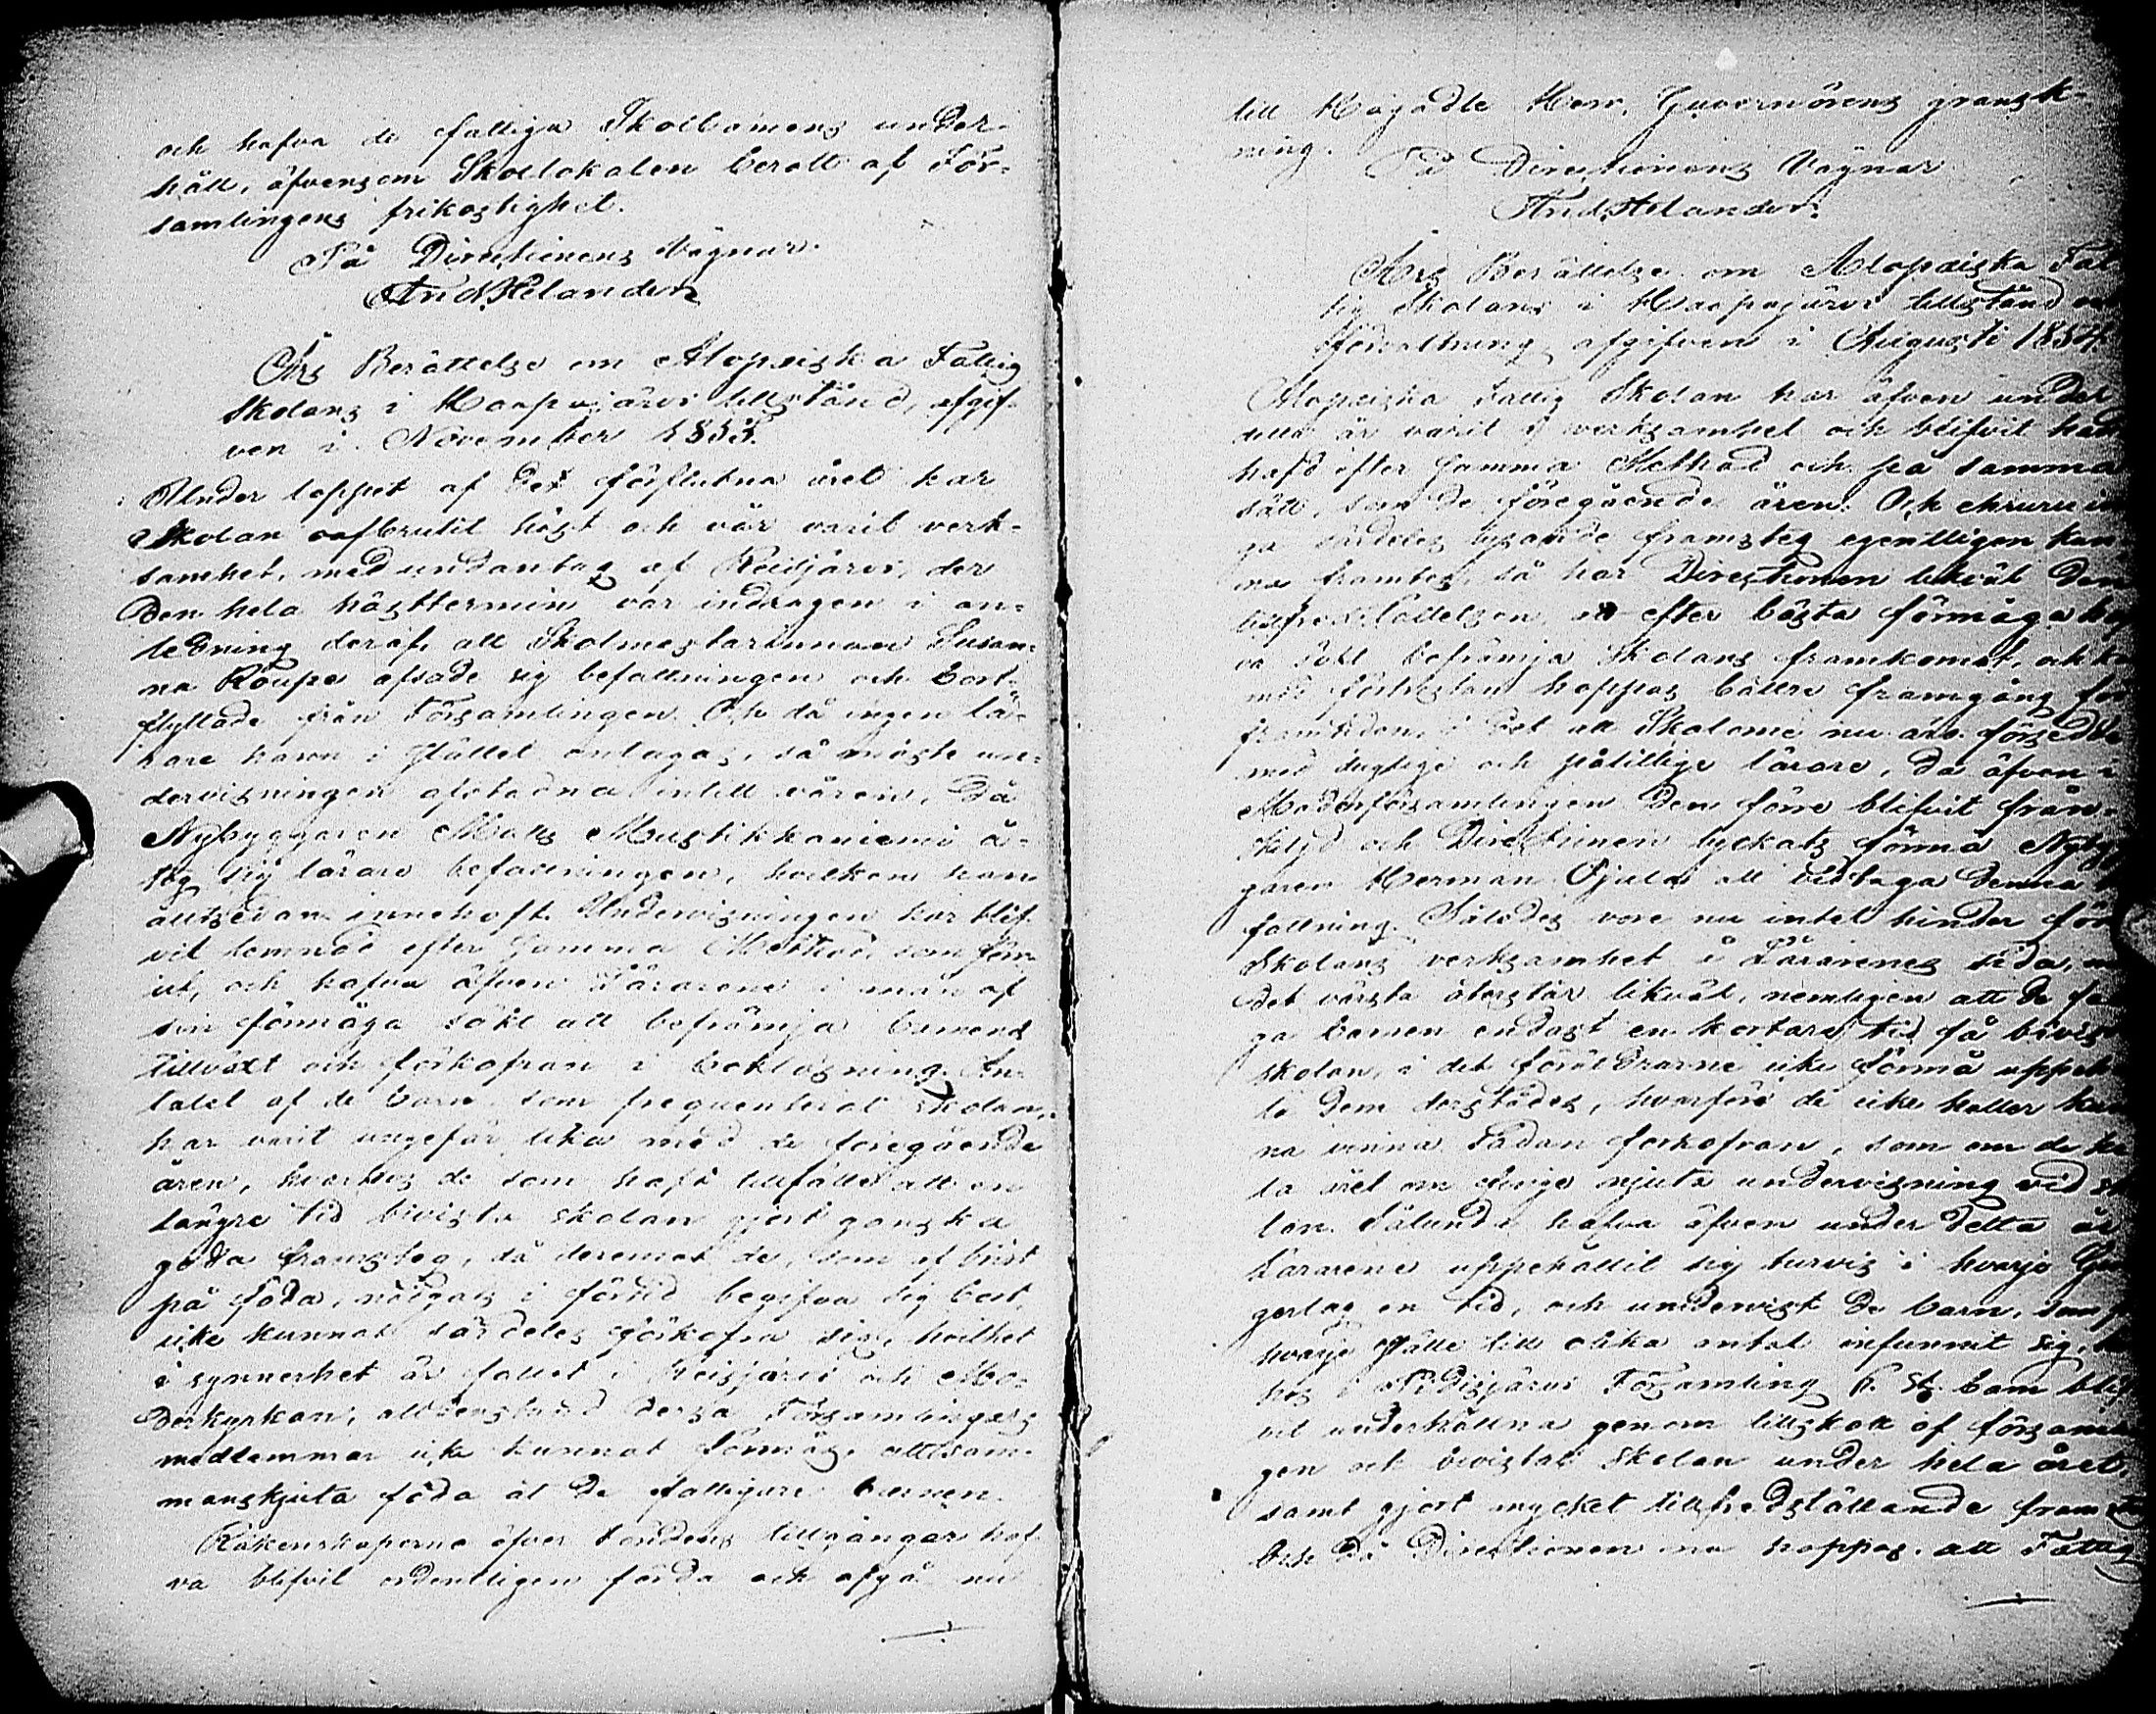 och hafva de fattiga Skolbarnens under-
håll, äfvensom Skollokalen berott af För-
samlingens frikostighet.
På Directionens Vägnar
And. Helander
Års Berättelse om Alopæiska Fattig
Skolans i Haapajärvi tillstånd, afgif-
ven i November 1853.
Under loppet af det förflutna året har
Skolan oafbrutit höst och vår varit verk-
samhet, med undantag af Reisjärvi, der
den hela hösttermin var indragen i an-
ledning deraf, att Skolmestarinnan Susan-
na Roupe afsade sig befattningen och bort-
flyttade från Församlingen. Och då ingen lä-
rare kunn i stället antagas, så måste un-
dervisningen afstadna intill våren, då
Nybyggaren Matts Mustikkaniemi å-
tog sig lärare befattningen, hvilken han
alltsedan innehaft. Undervisningen har blif-
vit lemnad efter samma Method som förr
ut, och hafva äfven Lärarene i mån af
sin förmåga sökt att befrämja barnens
tillväxt och förkofran i bokläsning. An-
talet af de barn, som frequenterat skolan,
har varit ungefär lika med de föregående
åren, hvarhos de som haft tillfälle att en
längre tid bivista skolan gjort ganska
goda framsteg, då deremot de, som af brist
på föda, nödgats i förtid begifva sig bort,
icke kunnat särdeles förkofra sig, hvilket
i synnerhet är fallet i Reisjärvi och Mo-
derkyrkan, alldenstund dessa Församlingars
medlemmar icke kunnat förmås att sam-
manskjuta föda åt de fattigare barnen.
Räkenskaperna öfver fondens tillgångar haf-
va blifvit ordentligen förda och afgå nu
till Högädle Herr Guvernörens gransk-
ning.
På Directionens Vägnar
And. Helander
Års Berättelse om Alopæiska Fat
tig Skolans i Haapajärvi tillstånd
förvaltning afgifven i Augusti 1854.
Alopæiska Fattig Skolan har äfven under
detta år varit i verksamhet och blifvit hand
hafd efter samma Method och på samma
sätt, som de föregående åren. Och ehuru in
ga särdeles lysande framsteg egentligen kun
nas framtes, så har Directionen likväl den
tillfredsställelsen, att efter bästa förmåga haf
va sökt befrämja Skolans framkomst, och
med förtröstan hoppas bättre framgång för
framtiden, i det att Skolorne nu äro försedde
med dugtige och pålitlige lärare, då äfven i
Moderförsamlingen den förre blifvit från-
skiljd och Directionen lyckats förmå Nybyg
garen Herman Ojala att vidtaga denna be
fattning. Således vore nu intet hinder för
Skolans verksamhet å Lärarenes sida,
det värsta återstår likväl, nemligen att de fa
ga barnen endast en kortare tid få bivista
skolan, i det föräldrarne icke förmå uppeh
la dem derstädes, hvarföre de icke heller kun
na vinna sådan förkofran, som om de he
la året om finge njuta undervisning vid sko
lan. Sålunda hafva äfven under detta år
Lärarene uppehållit sig turvis i hvarje
gerlag en tid, och undervist de barn, som
hvarje ställe till olika antal infunnit sig,
hos i Pidisjärvi Församling 6. st. barn blif
vit underhållna genom tillskott af församlin
gen och bivistat skolan under hela året,
samt gjort mycket tillfredställande framsteg
Och då Directionen nu hoppas, att Fattig